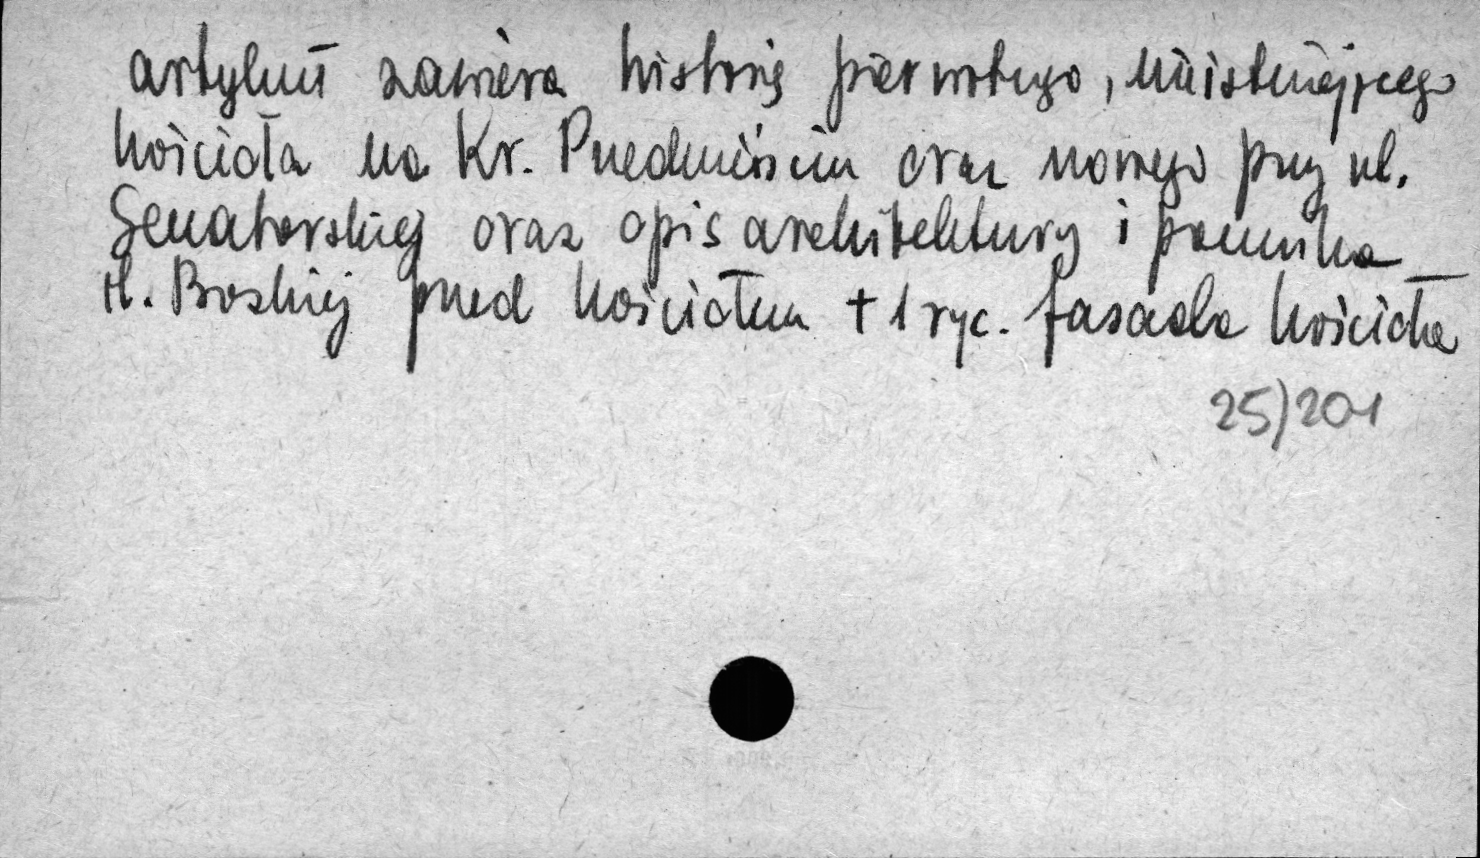 artykuł zawiera historię pierwotnego, nieistniejącego
kościoła na Kr. Przedmieściu oraz nowego przy ul.
Senatorskiej oraz opis architektury i pomnika
M. Boskiej przed kościołem + 1 ryc. fasada kościoła
25)201